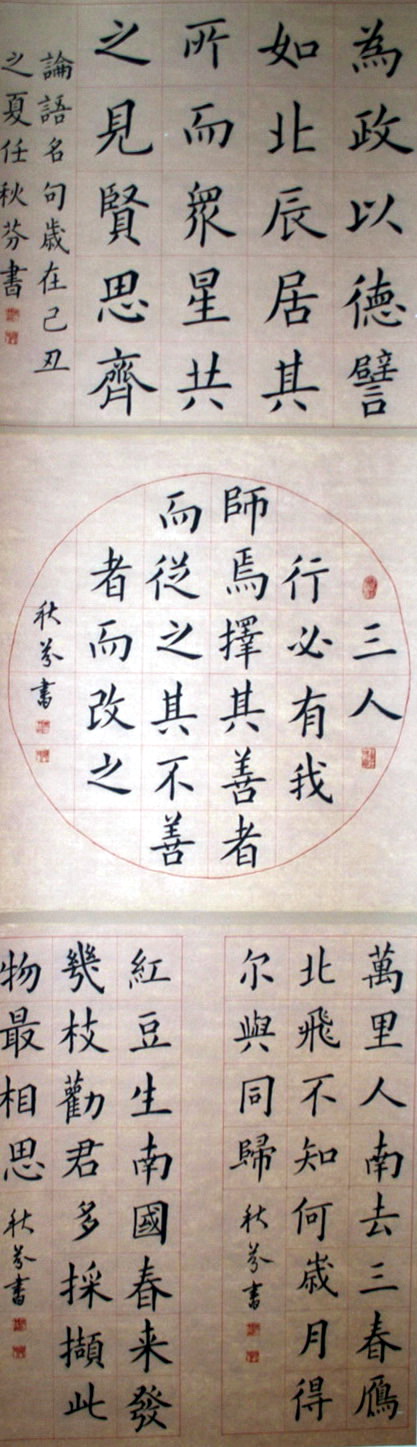 為政以德譬
如北辰居其
所而眾星共
之見賢思齊
論語名句歲在己丑
之夏任秋芬書
三人
行必有我
師焉擇其善者
而從之其不善
者而改之
秋芬書
萬里人南去三春雁
北飛不知何歲月得
尔與同歸
秋芬書
紅豆生南國春来發
幾枝勸君多採擷此
物最相思
秋芬書